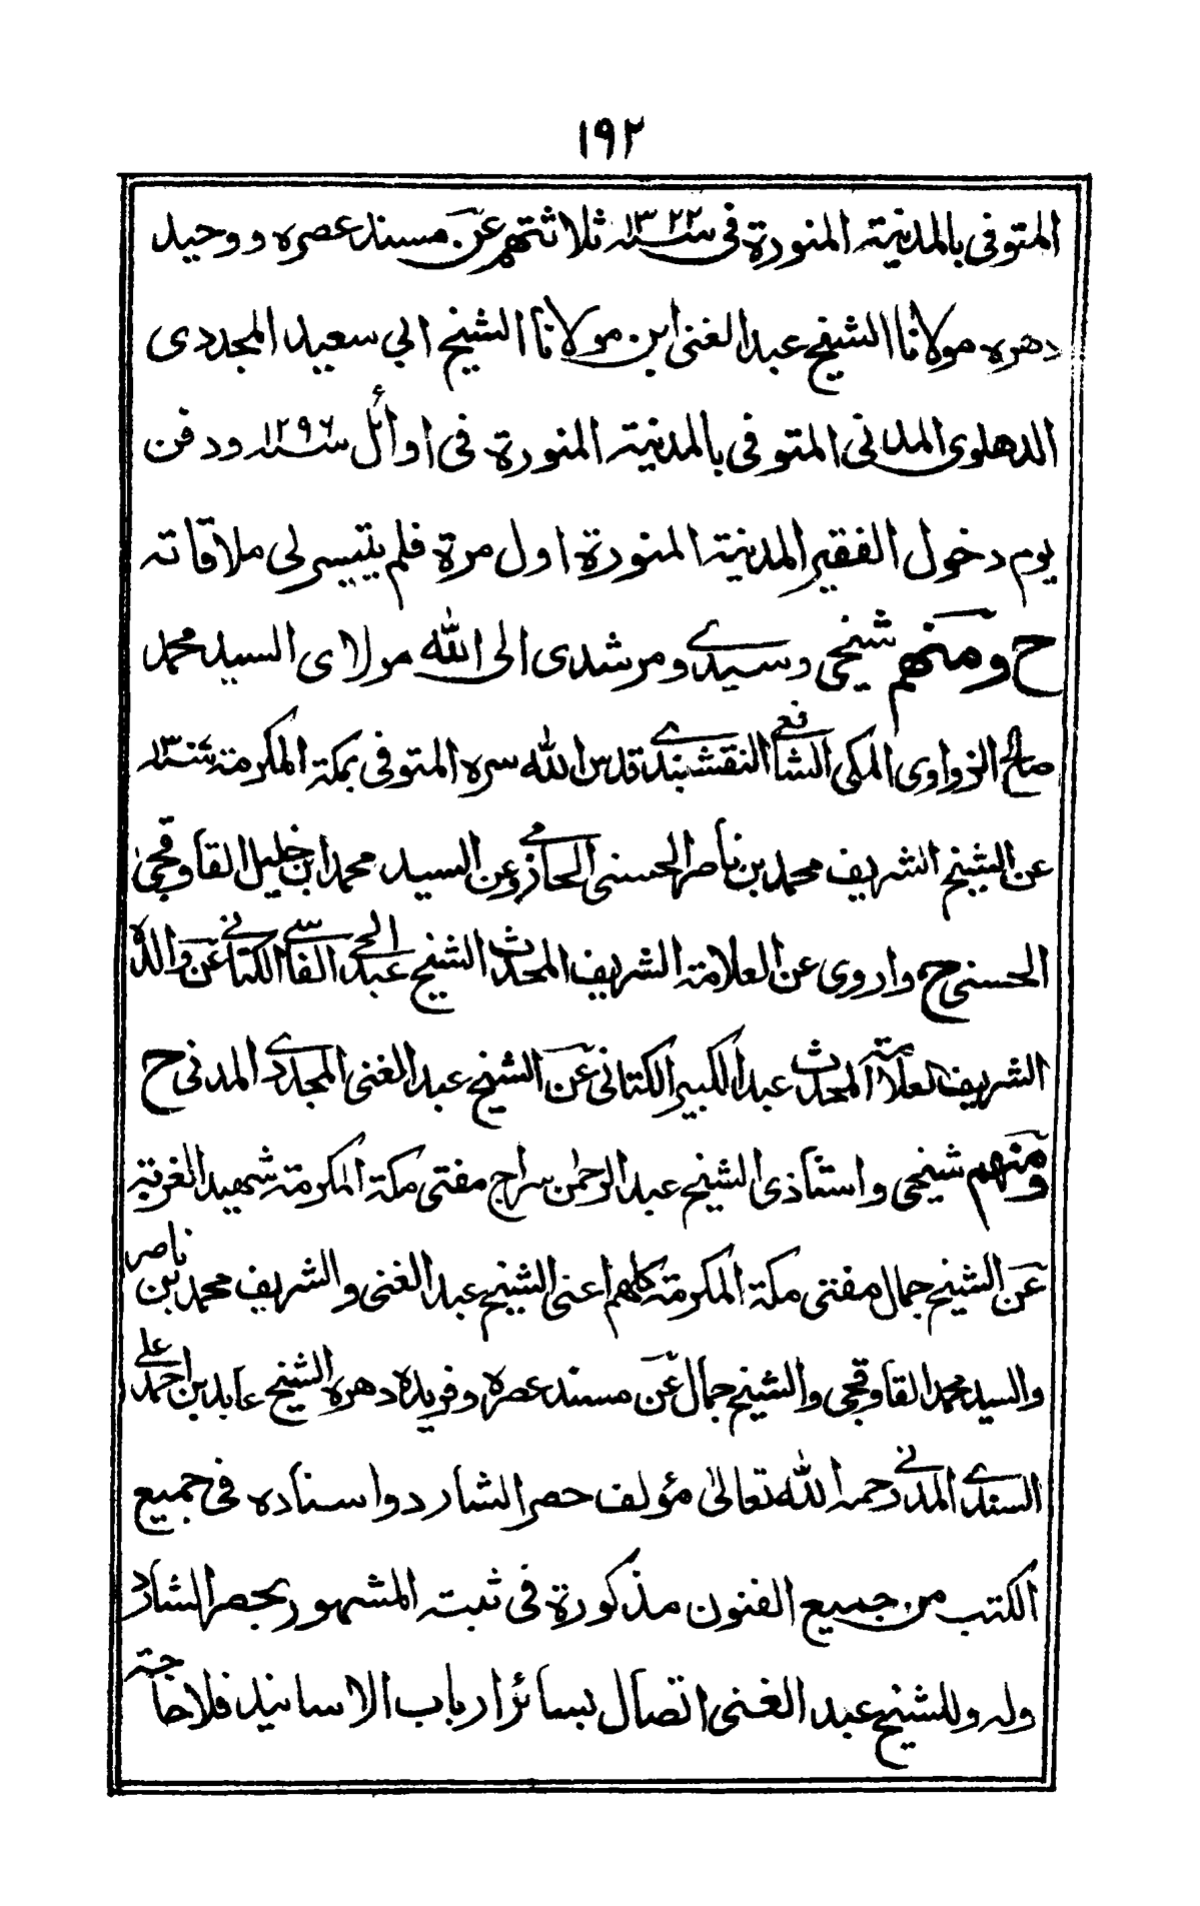 ١٩٢
المتوفى بالمدينة المنورة فى سنة ١٣٢٢ ثلاثتهم عن مسند عصره ووحيد
دهره مولانا الشيخ عبد الغنى ابن مولانا الشيخ ابي سعيد المجددى
الدهلوى المدنى المتوفى بالمدينة المنورة فى اوائل سنة ١٢٩٦ ودفن
يوم دخول الفقير المدينة المنورة اول مرة فلم يتيسر لى ملاقاته
ح ومنهم شيخى وسيدى ومرشدى الى الله مولاى السيد محمد
صالح الزواوى المكى الشافعى النقشبندى قدس الله سره المتوفى بمكة المكرمة
عن الشيخ الشريف محمد بن ناصر الحسنى الحازمى وعن السيد محمد ابن خليل القاوقجى
الحسنى ح واروى عن العلامة الشريف المحدث الشيخ عبد الحى الفاسى الكتانى عن والده
الشريف العلامة المحدث عبد الكبير الكتانى عن الشيخ عبد الغنى المجددى المدنى ح
ومنهم شيخى واستاذى الشيخ عبد الرحمن سراج مفتى مكة المكرمة شهيد الغربة
عن الشيخ جمال مفتى مكة المكرمة كلهم اعنى الشيخ عبد الغنى والشريف محمد بن ناصر
والسيد محمد القاوقجى والشيخ جمال عن مسند عصره وفريدة دهره الشيخ عابد بن احمد على
السندى المدنى رحمه الله تعالى مؤلف حصر الشارد واسناده فى جميع
الكتب من جميع الفنون مذكورة فى ثبته المشهور بحصر الشارد
وله وللشيخ عبد الغنى اتصال بسائر ارباب الاسانيد فلا حاجة